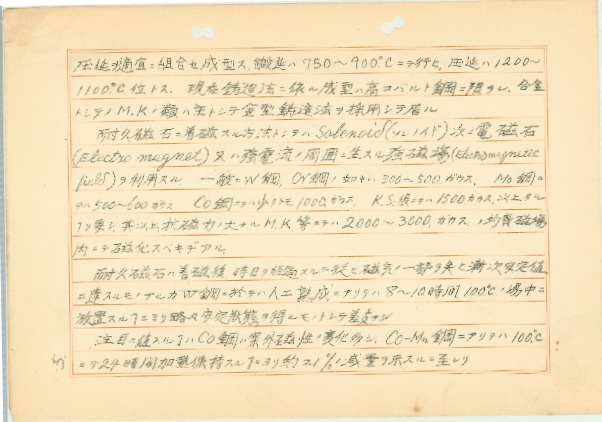 圧延ヲ適宜ニ組合セ成型ス、鍛延ハ750〜900℃ニテ行ヒ、圧延ハ1200〜
1100℃位トス. 現在鋳造法ニ依ル成型ハ高コバルト鋼ニ限ラレ、合金
トシテノM.K.ノ類ハ主トシテ金型鋳造法ヲ採用シテ居ル
耐久磁石ニ着磁スル方法トシテハSolenoid(ソレノイド)次ニ電磁石
(Electro magnet)又ハ強電流ノ周囲ニ生スル強磁場(Electromagnetic
field)ヲ利用スル 一般ニW鋼、Cr鋼ノ如キハ300〜500.ガウス. Mo鋼ニ
テハ500〜600ガウス Co鋼ニテハ少クトモ1000.ガウス. K.S.鋼ニテハ1500ガウス.以上タル
ヿヲ要シ、其以上抗磁力ノ大ナルM.K.等ニテハ2000〜3000.ガウス.ノ均斉磁場
内ニテ磁化スベキデアル.
耐久磁石ハ着磁後時日ヲ経過スルニ従ヒ磁気ノ一部ヲ失ヒ漸次安定値
ニ達スルモノナルカW鋼ニ於テハ人工熟成ニアリテハ8〜10時間100℃ノ場中ニ
放置スルヿニヨリ略々安定状態ヲ得ルモノトシテ差支ナシ
注目ニ値スルヿハCo鋼ハ案外磁性ノ変化多シ、Co-Mn鋼ニアリテハ100℃
ニテ24時間加熱保持スルヿニヨリ約21%ノ減量ヲ示スルニ至レリ